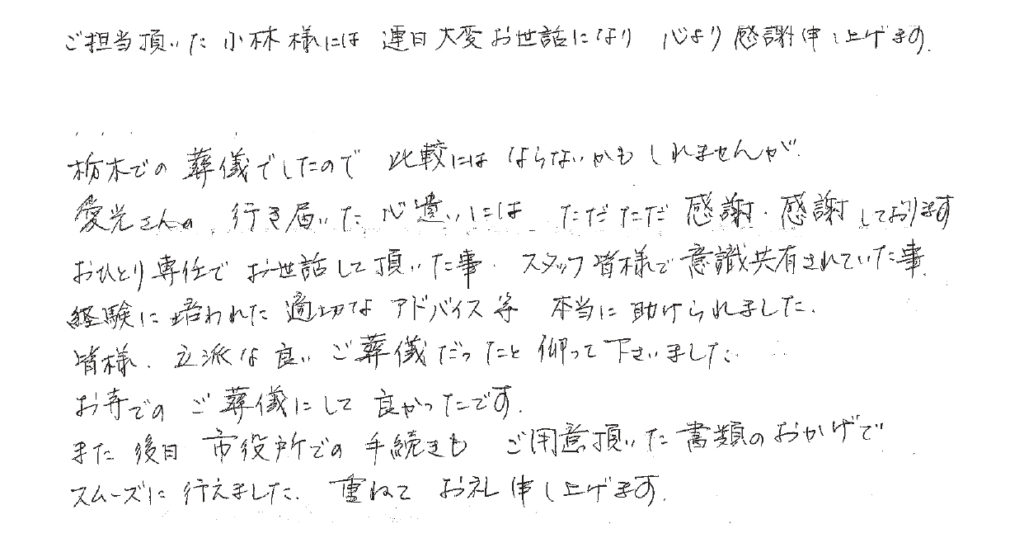 ご担当頂いた小林様には 連日大変お世話になり 心より感謝申し上げます.
栃木での葬儀でしたので 比較にはならないかもしれませんが.
愛光さんの 行き届いた心遣いには ただただ 感謝・感謝しております
おひとり専任で お世話して頂いた事・スタッフ皆様で意識共有されていた事.
経験に培われた適切な アドバイス等 本当に助けられました.
皆様、立派な良いご葬儀だったと仰って下さいました.
お寺での ご葬儀にして 良かったです.
また後日 市役所での手続きも ご用意頂いた書類のおかげで
スムーズに行えました. 重ねて お礼申し上げます.